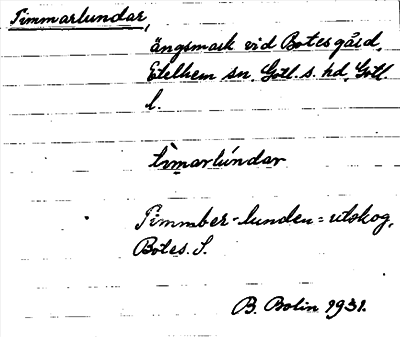 Timmarlundar,
ängsmark vid Botes gård,
Etelhem sn, Gotl. s. hd, Gotl.
l.
tìmarlúndar
Timmber-lunden = utskog,
Botes. S.
B. Bolin 1931.